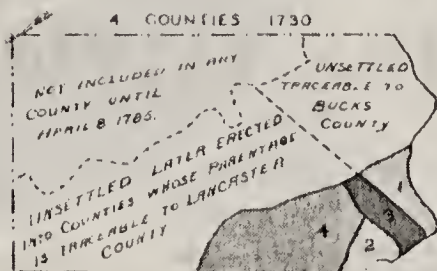 4 COUNTIES 1730
NOT INCLUDED IN ANY
COUNTY UNTIL
APRIL 8 1785.
UNSETTLED
TRACEABLE TO
BUCKS
COUNTY
UNSETTLED LATER ERECTED
INTO COUNTIES WHOSE PARENTAGE
IS TRACEABLE TO LANCASTER
COUNTY
1
3
4
2